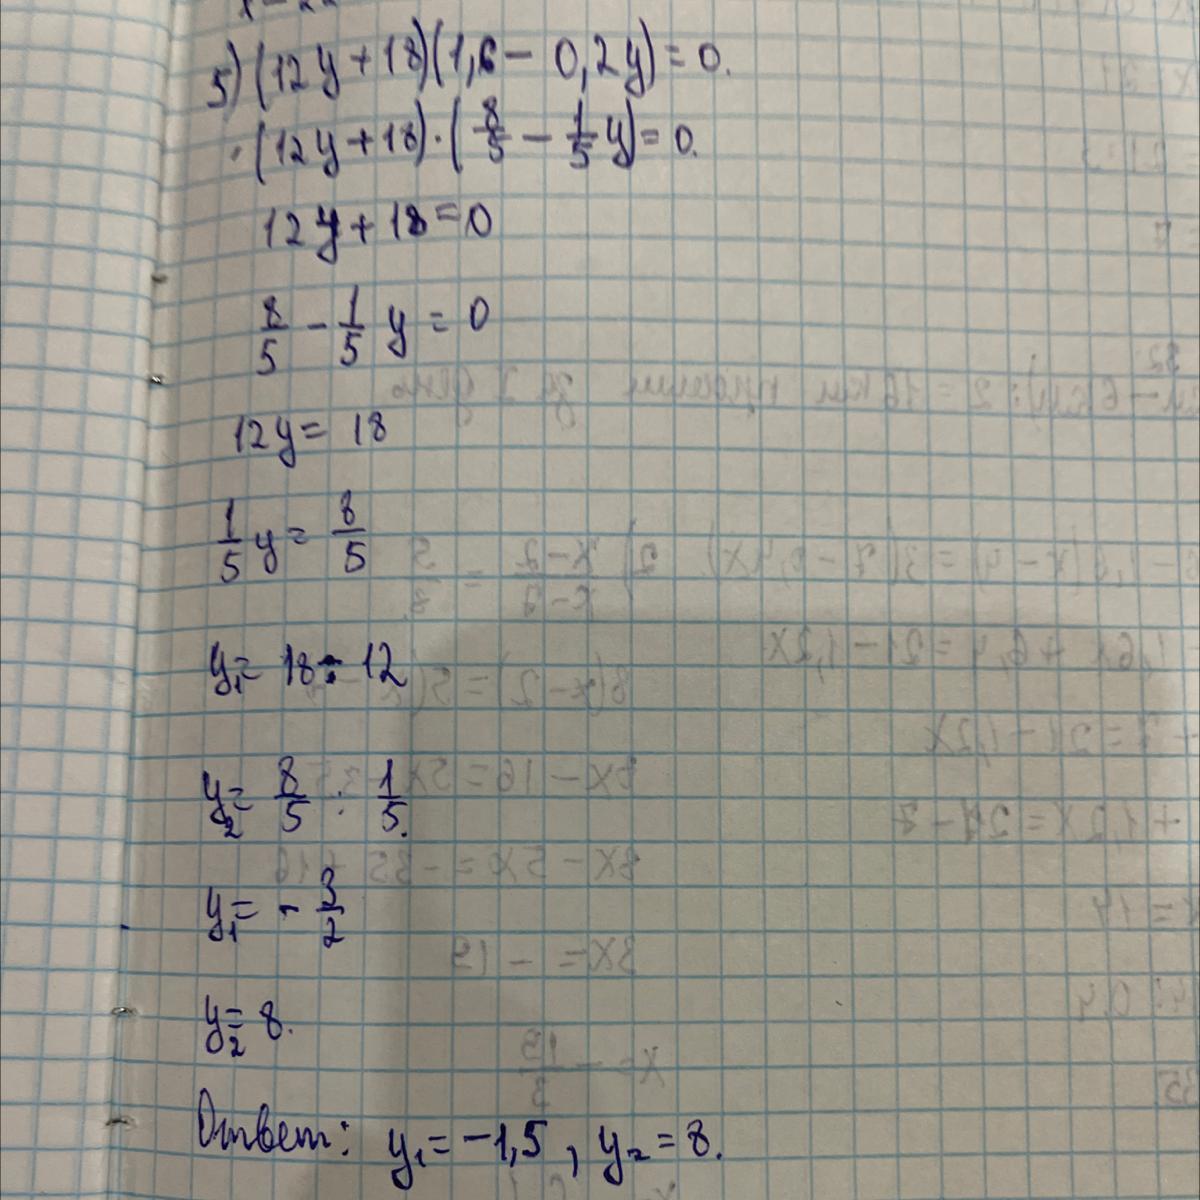 5) (12y + 18)(1,6 - 0,2y) = 0.
(12y + 18) · (8/5 - 1/5 y) = 0.
12y + 18 = 0
8/5 - 1/5 y = 0
12y = 18
1/5 y = 8/5
y₁ = 18 : 12
y₂ = 8/5 : 1/5.
y₁ = - 3/2
y₂ = 8.
Ответ: y₁ = -1,5, y₂ = 8.